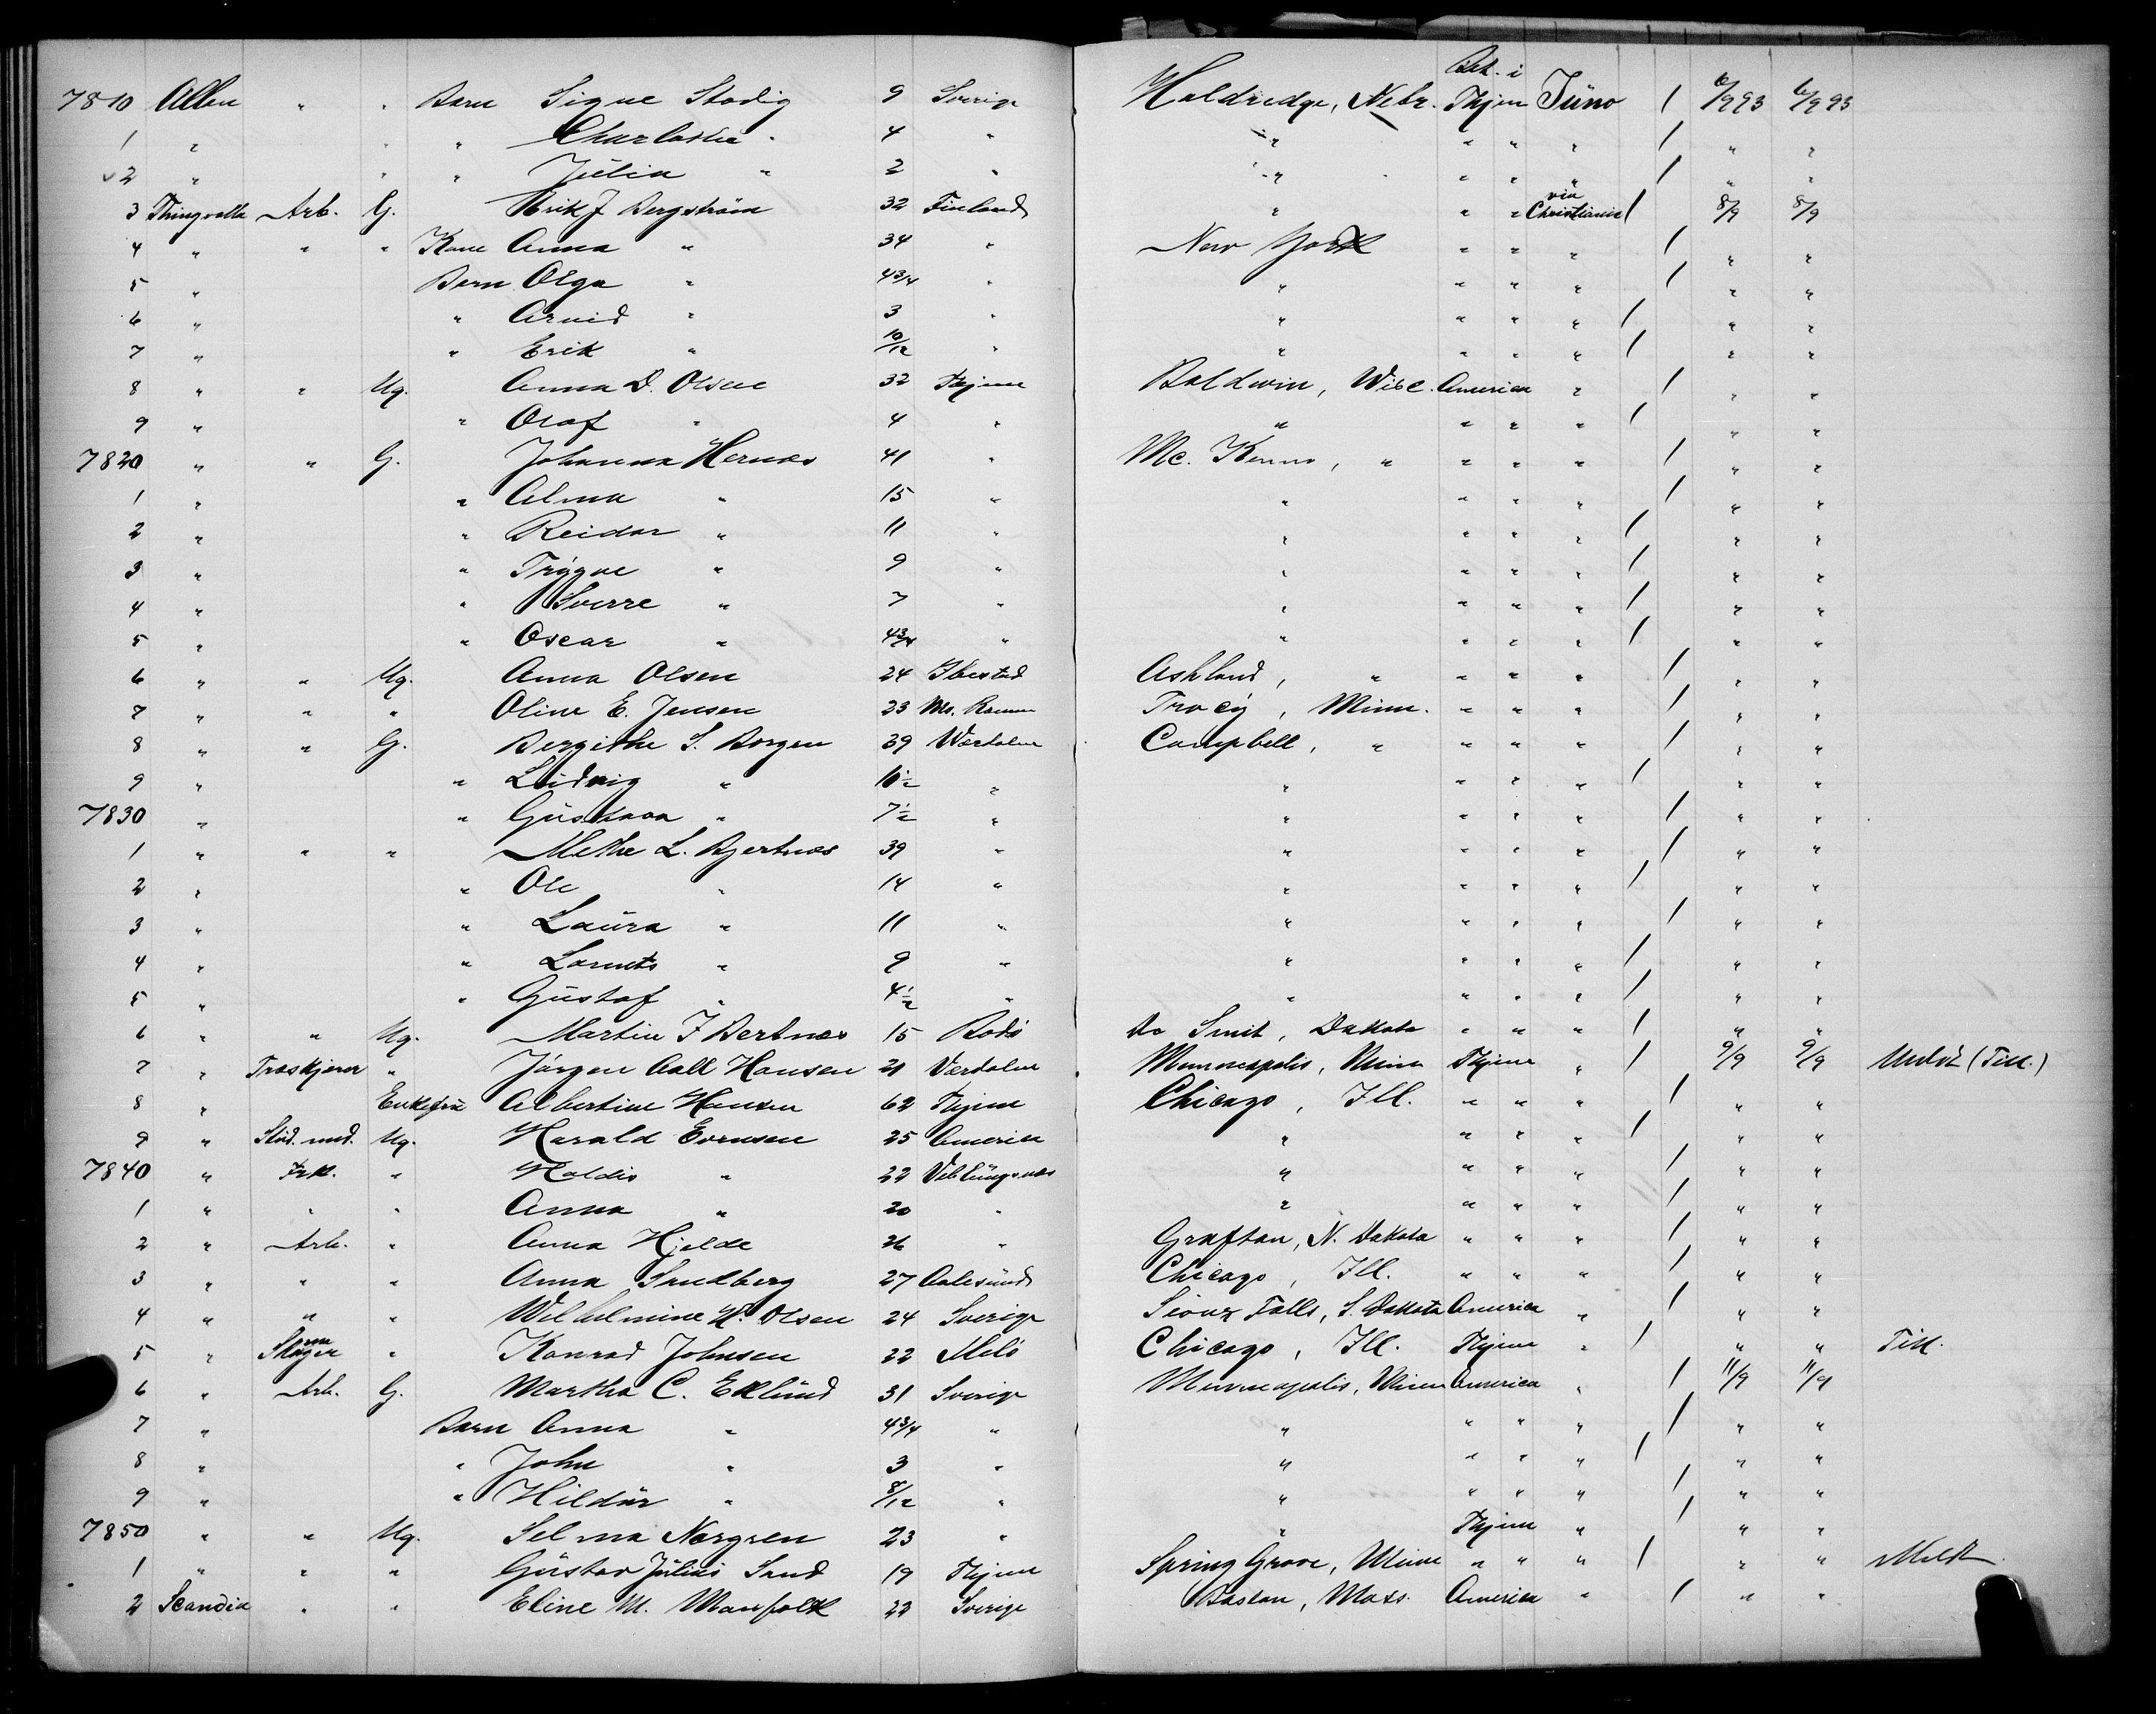 Bet. i
7810 Allen " " Barn Signe Stodig 9 Sverige Holdredge, Nebr. Thjem Juno / 6/9 93 6/9 93
1 " " " Charlotta " 4 " " " " " / " "
2 " " " Julia " 2 " " " " " / " "
3 Thingvalla Arb. G. Erik J Bergström 32 Finland " " " via Christiania / 8/9 8/9
4 " " " Kone Anna " 34 " New York " " " / " "
5 " Barn Olga " 4 3/4 " " " " " / " "
6 " " Arvid " 3 " " " " " / " "
7 " " Erik " 10/12 " " " " " / " "
8 " " Ug. Anna D. Olsen 32 Thjem Baldwin, Wisc. America " / " "
9 " " Olaf " 4 " " " " " / " "
7820 " " G. Johanna Hernæs 41 " Mc. Kenno, " " " " / " "
1 " " Alma " 15 " " " " " / " "
2 " " Reidar " 11 " " " " " / " "
3 " " Trygve " 9 " " " " " / " "
4 " " Sverre " 7 " " " " " / " "
5 " " Oscar " 4 3/4 " " " " " / " "
6 " " Ug. Anna Olsen 24 Ibestad Ashland, " " " " / " "
7 " " " Oline E. Jensen 23 Mo. Ranen Tracy, Minn. " " " / " "
8 " " G. Bergithe S. Borgen 39 Værdalen Campbell, " " " " / " "
9 " " Ludvig " 10 1/2 " " " " " / " "
7830 " " Gustava " 7 1/2 " " " " " / " "
1 " " " Methe L. Bjertnæs 39 " " " " " / " "
2 " " Ole " 14 " " " " " / " "
3 " " Laura " 11 " " " " " / " "
4 " " Lornts " 9 " " " " " / " "
5 " " Gustaf " 4 1/2 " " " " " / " "
6 " " Ug. Martin J Bertnæs 15 Bodø De Smit, Dakota " " " / " "
7 " Træskjærer " Jörgen Aall Hansen 21 Værdalen Minneapolis, Minn Thjem " / 9/9 9/9 Udv. (Till.)
8 " Enkefru Albertine Hansen 62 Thjem Chicago, Ill. " " " / " "
9 " Stud. med. Ug. Harald Evensen 25 America " " " " / " "
7840 " Frk. " Haldis " 22 Veblungsnæs " " " " / " "
1 " " " Anna " 20 " " " " " / " "
2 " Arb. " Anna Hjelde 26 " Grafton, N. Dakota " " " / " "
3 " " " Anna Sandberg 27 Aalesund Chicago, Ill. " " " / " "
4 " " " Wilhelmine H. Olsen 24 Sverige Sioux Falls, S. Dakota America " / " "
5 " " Konrad Johnsen 22 Melö Chicago, Ill. Thjem " / " " Till.
6 " Arb. G. Martha C. Eklund 31 Sverige Minneapolis, Minn America " / 11/9 11/9
7 " Barn Anna " 4 3/4 " " " " " / " "
8 " " John " 3 " " " " " / " "
9 " " Hildur " 8/12 " " " " " / " "
7850 " " Ug. Selma Norgren 23 " " Thjem " / " "
1 " " " Gustav Julius Sand 19 Thjem Spring Grove, Minn " " " / " " Meldt
2 Scandia " " Eline M. Manfolk 22 Sverige Boston, Mass. America " / " "